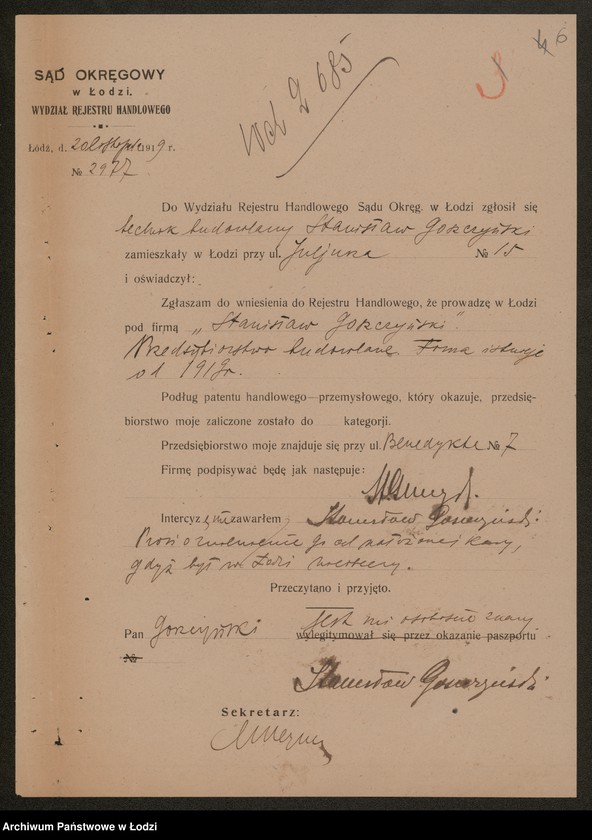 6
SĄD OKRĘGOWY
w Łodzi.
WYDZIAŁ REJESTRU HANDLOWEGO
Łódź, d. 20 listopada 1919 r.
№ 2977
685
Do Wydziału Rejestru Handlowego Sądu Okręg. w Łodzi zgłosił się
technik budowlany Stanisław Gorczyński
zamieszkały w Łodzi przy ul. Juljusza № 15
i oświadczył:
Zgłaszam do wniesienia do Rejestru Handlowego, że prowadzę w Łodzi
pod firmą „Stanisław Gorczyński".
Przedsiębiorstwo budowlane. Firma istnieje
od 1919r.
Podług patentu handlowego—przemysłowego, który okazuje, przedsię-
biorstwo moje zaliczone zostało do kategorji.
Przedsiębiorstwo moje znajduje się przy ul. Benedykta № 7
Firmę podpisywać będę jak następuje:
Intercyzy nie zawarłem Stanisław Gorczyński
Prosi o zwolnienie go od nałożonej kary,
gdyż był w Łodzi nieobecny.
Przeczytano i przyjęto.
jest mi osobiście znany
Pan Gorczyński wylegitymował się przez okazanie paszportu
№
Stanisław Gorczyński
Sekretarz:
Archiwum Państwowe w Łodzi